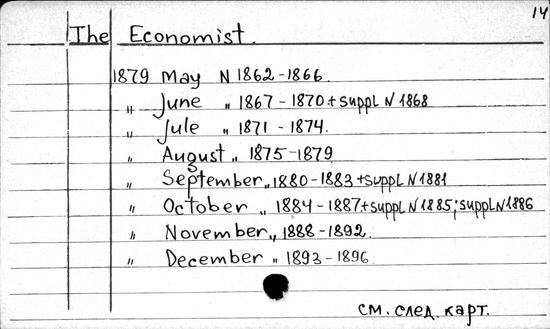 14
The Economist.
1879 May N 1862-1866.
" June " 1867-1870+suppl N 1868
" Jule " 1871-1874.
" August " 1875-1879
" September " 1880-1883+suppl N 1881
" October " 1884-1887+suppl N 1885; suppl N 1886
" November " 1888-1892.
" December " 1893-1896.
см. след. карт.